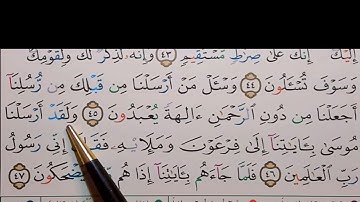 إِلَيْكَ إِنَّكَ عَلَىٰ صِرَٰطٍ مُّسْتَقِيمٍ ٤٣ وَإِنَّهُۥ لَذِكْرٌ لَّكَ وَلِقَوْمِكَ
وَسَوْفَ تُسْـَٔلُونَ ٤٤ وَسْـَٔلْ مَنْ أَرْسَلْنَا مِن قَبْلِكَ مِن رُّسُلِنَآ
أَجَعَلْنَا مِن دُونِ ٱلرَّحْمَٰنِ ءَالِهَةً يُعْبَدُونَ ٤٥ وَلَقَدْ أَرْسَلْنَا
مُوسَىٰ بِـَٔايَٰتِنَآ إِلَىٰ فِرْعَوْنَ وَمَلَإِيْهِۦ فَقَالَ إِنِّى رَسُولُ
رَبِّ ٱلْعَٰلَمِينَ ٤٦ فَلَمَّا جَآءَهُم بِـَٔايَٰتِنَآ إِذَا هُم يَضْحَكُونَ ٤٧